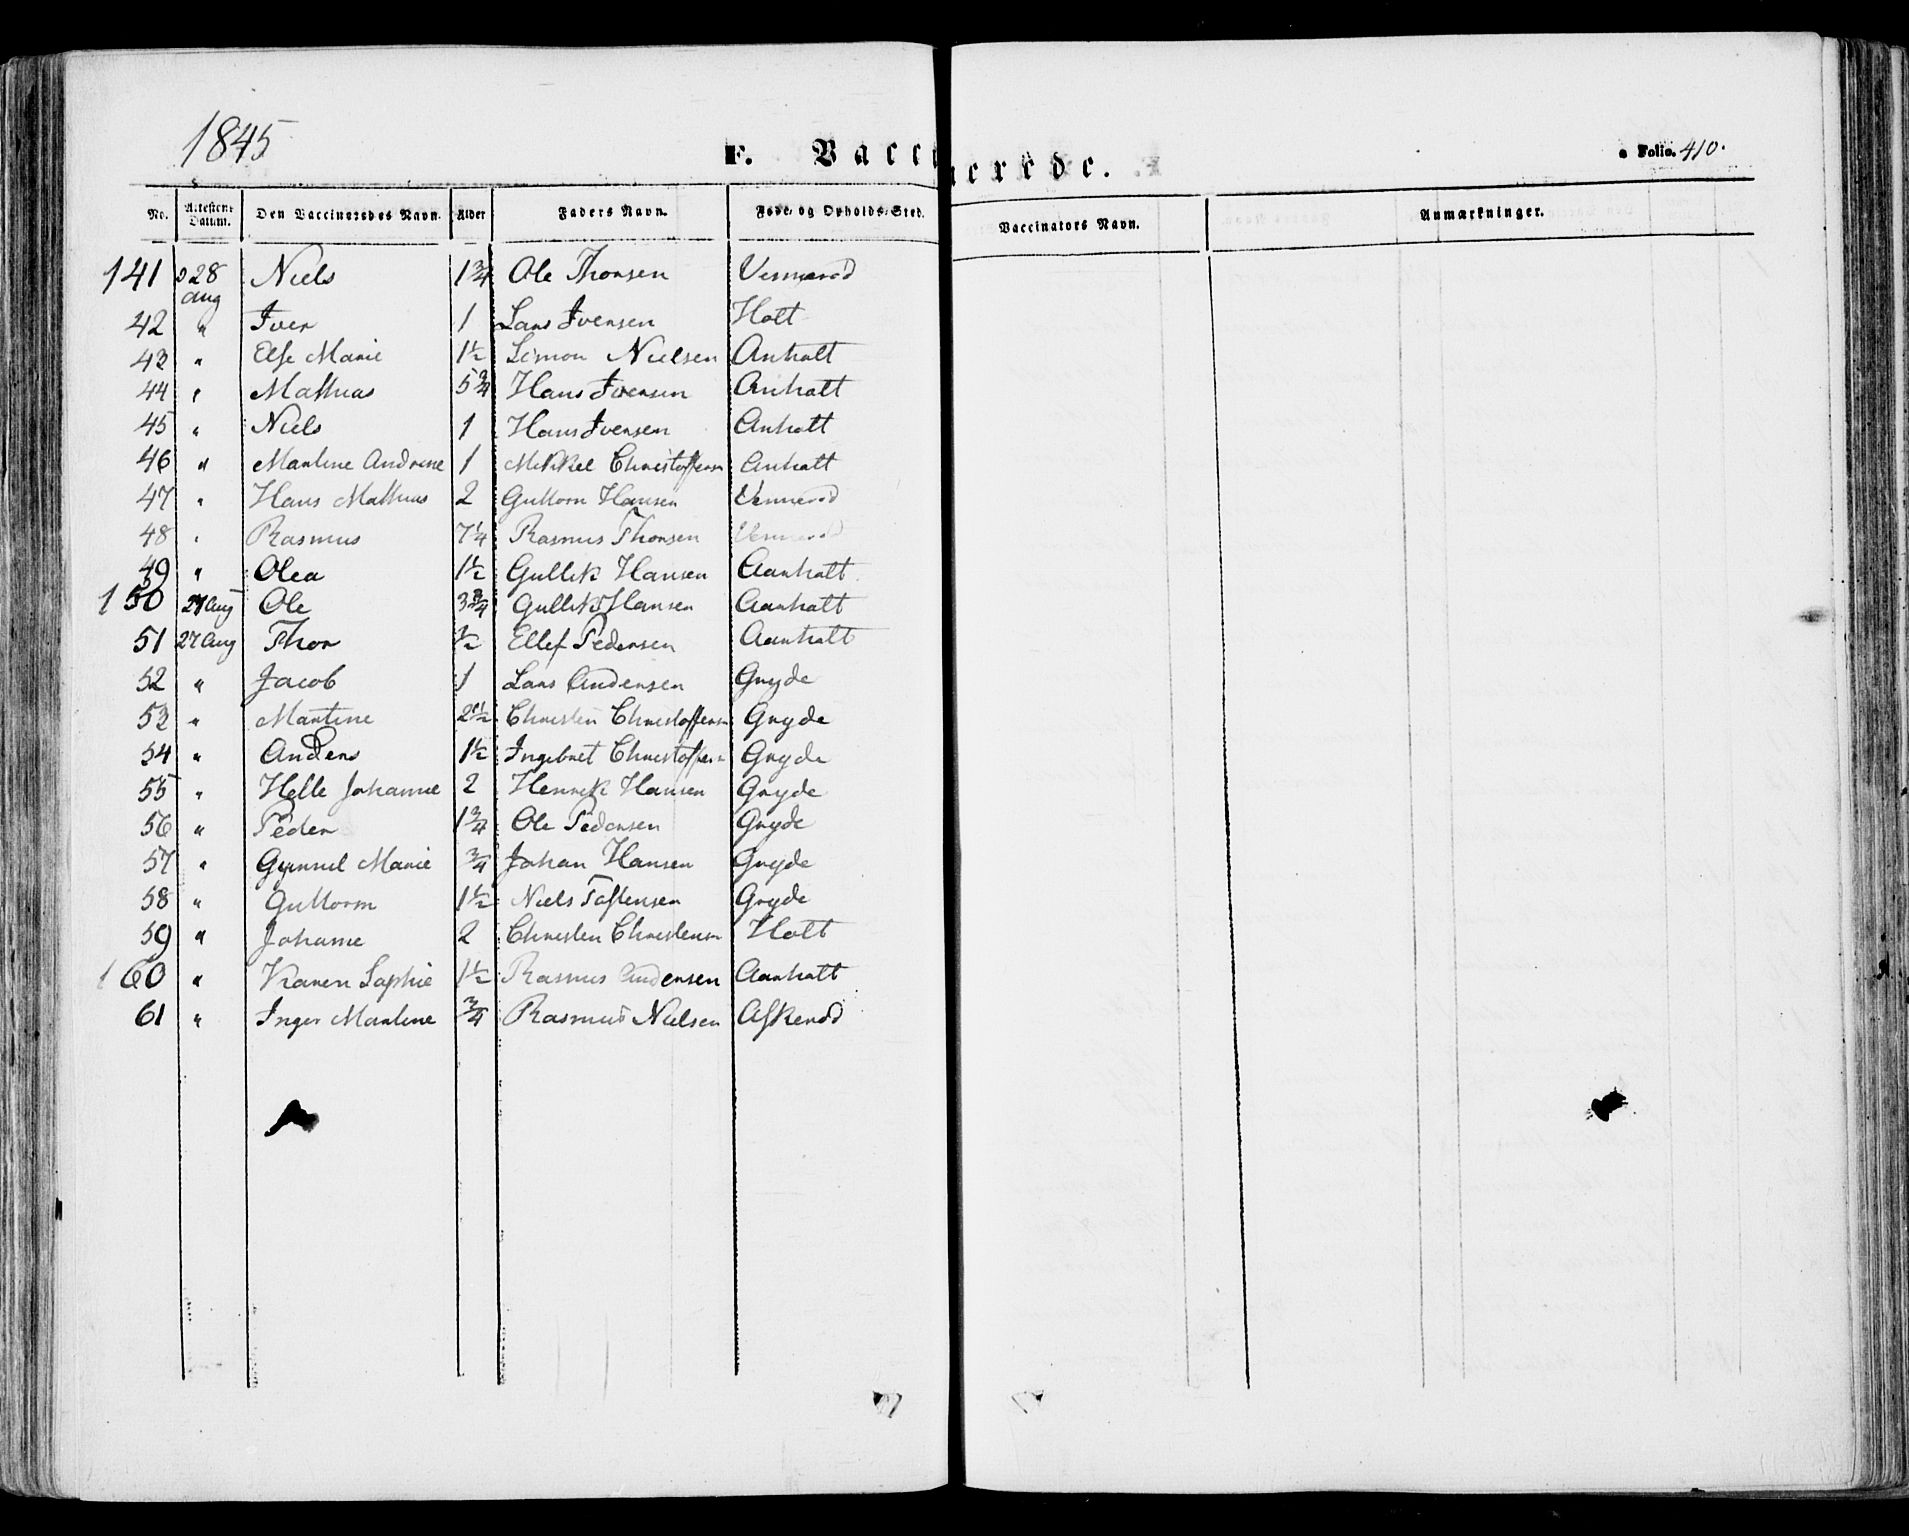 1845
F. Vaccinerede.
Folio. 410.
No. Attestens Datum. Den Vaccineredes Navn. Alder Faders Navn. Føde- og Opholds-Sted. Vaccinators Navn. Anmærkninger.
141 d 28 Aug Niels 1 3/4 Ole Thorsen Vennerød
42 " Iver 1 Lars Iversen Holt
43 " Else Marie 1 1/2 Simon Nielsen Anholt
44 " Mathias 5 3/4 Hans Iversen Anholt
45 " Niels 1 Hans Iversen Anholt
46 " Martine Andrine 1 Mikkel Christoffersen Anholt
47 " Hans Mathias 2 Guttorm Hansen Vennerød
48 " Rasmus 7 1/4 Rasmus Thorsen Vennerød
49 " Olea 1 1/2 Gullik Hansen Aanholt
150 27 Aug Ole 3 3/4 Gullik Hansen Aanholt
51 27 Aug Thor 1/2 Ellef Pedersen Aanholt
52 " Jacob 1 Lars Andersen Gryde
53 " Martine 2 1/2 Christen Christoffersen Gryde
54 " Anders 1 1/2 Ingebret Christoffersen Gryde
55 " Helle Johanne 2 Henrik Hansen Gryde
56 " Peder 1 3/4 Ole Pedersen Gryde
57 " Gunnil Marie 3/4 Johan Hansen Gryde
58 " Guttorm 1 1/2 Niels Tostensen Gryde
59 " Johanne 2 Christen Christensen Holt
160 " Karen Sophie 1 1/2 Rasmus Andersen Aanholt
61 " Inger Martine 3/4 Rasmus Nielsen Askerød